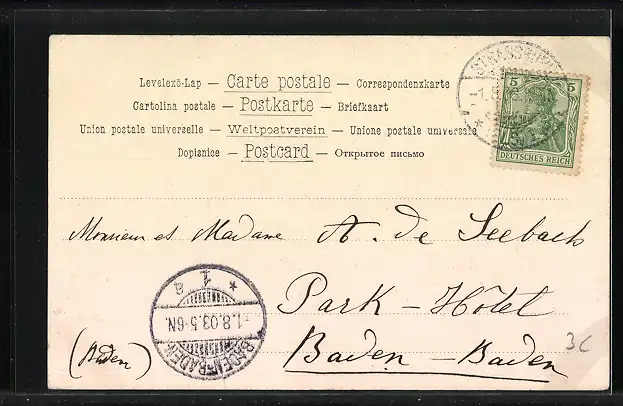 Levelező-Lap — Carte postale — Correspondenzkarte
Cartolina postale — Postkarte — Briefkaart
Union postale universelle — Weltpostverein — Unione postale universale
Dopisnice — Postcard — Открытое письмо
STRASSBURG
5 5
DEUTSCHES REICH
Monsieur et Madame A. de Seebach
Park-Hôtel
Baden-Baden
(Baden)
* 1 a
-1.8.03.5-6N.
BADEN-BADEN
3C